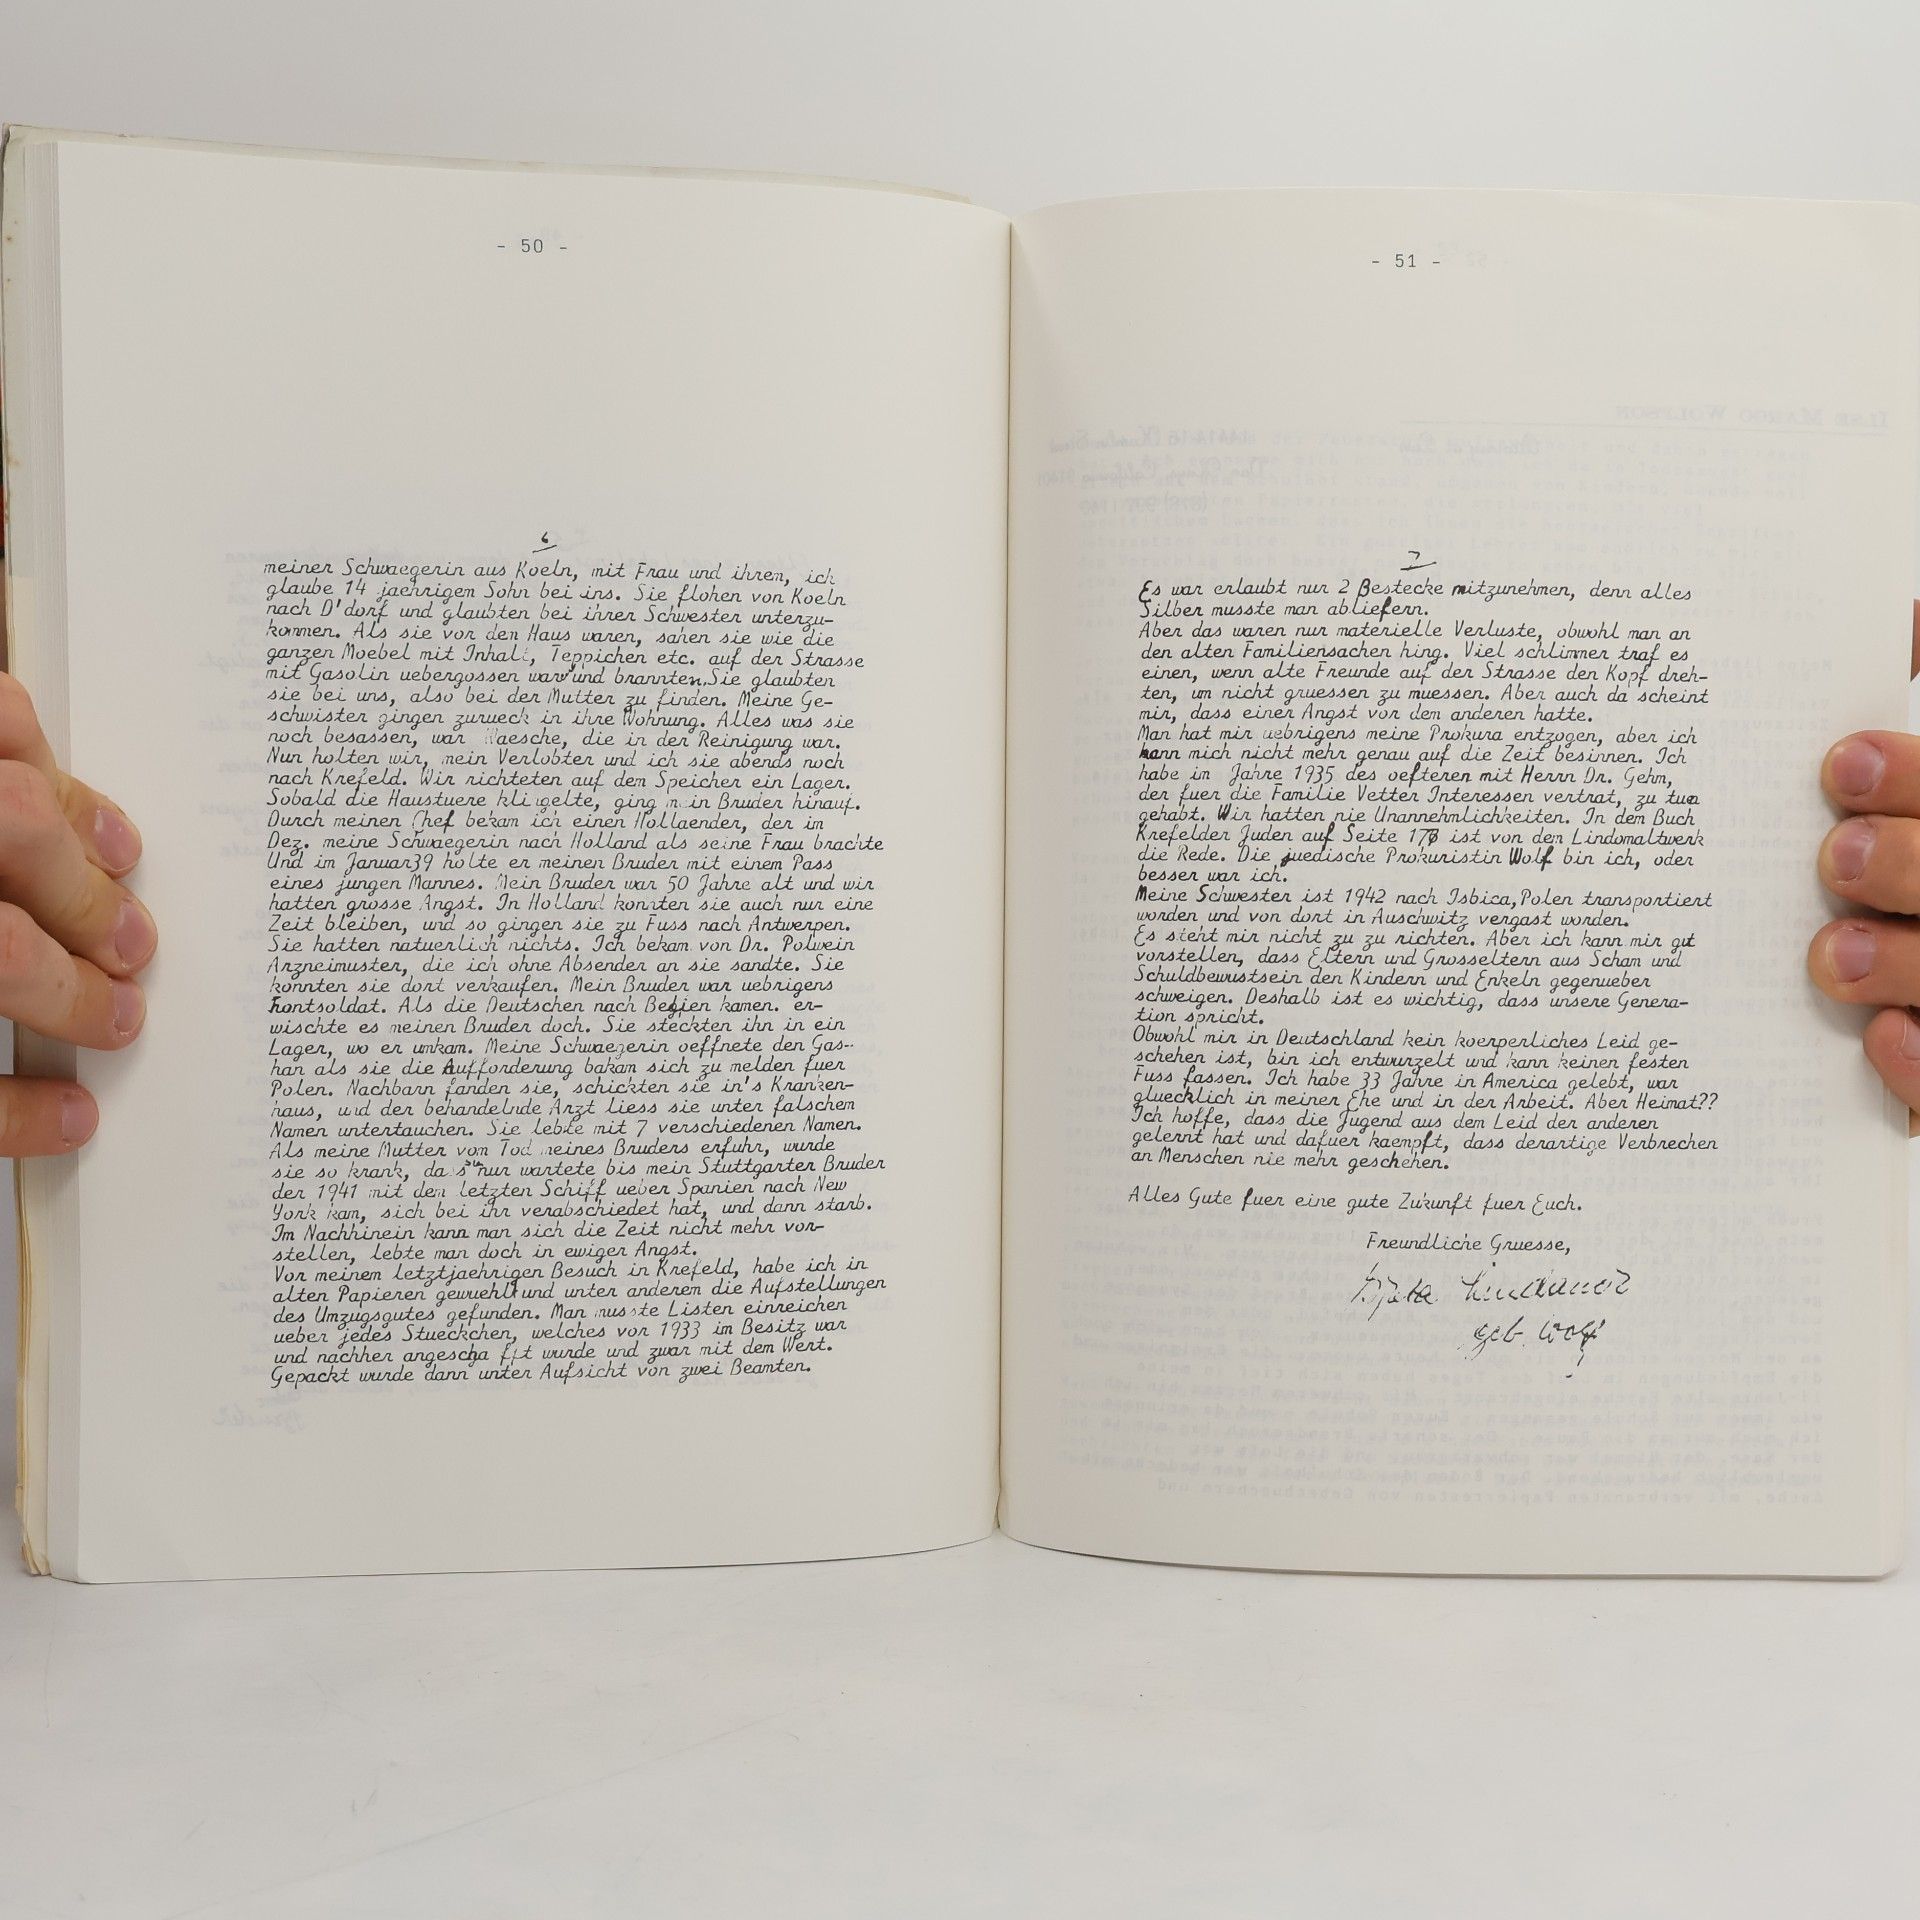 - 50 -
6
meiner Schwaegerin aus Koeln, mit Frau und ihrem, ich
glaube 14 jaehrigem Sohn bei ins. Sie flohen von Koeln
nach D'dorf und glaubten bei ihrer Schwester unterzu-
kommen. Als sie vor dem Haus waren, sahen sie wie die
ganzen Moebel mit Inhalt, Teppichen etc. auf der Strasse
mit Gasolin uebergossen war und brannten. Sie glaubten
sie bei uns, also bei der Mutter zu finden. Meine Ge-
schwister gingen zurueck in ihre Wohnung. Alles was sie
noch besassen, war Waesche, die in der Reinigung war.
Nun holten wir, mein Verlobter und ich sie abends noch
nach Krefeld. Wir richteten auf dem Speicher ein Lager.
Sobald die Haustuere klingelte, ging mein Bruder hinauf.
Durch meinen Chef bekam ich einen Hollaender, der im
Dez. meine Schwaegerin nach Holland als seine Frau brachte
Und im Januar39 holte er meinen Bruder mit einem Pass
eines jungen Mannes. Mein Bruder war 50 Jahre alt und wir
hatten grosse Angst. In Holland konnten sie auch nur eine
Zeit bleiben, und so gingen sie zu Fuss nach Antwerpen.
Sie hatten natuerlich nichts. Ich bekam von Dr. Polwein
Arzneimuster, die ich ohne Absender an sie sandte. Sie
konnten sie dort verkaufen. Mein Bruder war uebrigens
Frontsoldat. Als die Deutschen nach Belgien kamen. er-
wischte es meinen Bruder doch. Sie steckten ihn in ein
Lager, wo er umkam. Meine Schwaegerin oeffnete den Gas-
han als sie die Aufforderung bakam sich zu melden fuer
Polen. Nachbarn fanden sie, schickten sie in's Kranken-
haus, und der behandelnde Arzt liess sie unter falschem
Namen untertauchen. Sie lebte mit 7 verschiedenen Namen.
Als meine Mutter vom Tod meines Bruders erfuhr, wurde
sie so krank, dass sie nur wartete bis mein Stuttgarter Bruder
der 1941 mit dem letzten Schiff ueber Spanien nach New
York kam, sich bei ihr verabschiedet hat, und dann starb.
Im Nachhinein kann man sich die Zeit nicht mehr vor-
stellen, lebte man doch in ewiger Angst.
Vor meinem letztjaehrigen Besuch in Krefeld, habe ich in
alten Papieren gewuehlt und unter anderem die Aufstellungen
des Umzugsgutes gefunden. Man musste Listen einreichen
ueber jedes Stueckchen, welches vor 1933 im Besitz war
und nachher angescha fft wurde und zwar mit dem Wert.
Gepackt wurde dann unter Aufsicht von zwei Beamten.
- 51 -
7
Es war erlaubt nur 2 Bestecke mitzunehmen, denn alles
Silber musste man abliefern.
Aber das waren nur materielle Verluste, obwohl man an
den alten Familiensachen hing. Viel schlimmer traf es
einen, wenn alte Freunde auf der Strasse den Kopf dreh-
ten, um nicht gruessen zu muessen. Aber auch da scheint
mir, dass einer Angst vor dem anderen hatte.
Man hat mir uebrigens meine Prokura entzogen, aber ich
kann mich nicht mehr genau auf die Zeit besinnen. Ich
habe im Jahre 1935 des oefteren mit Herrn Dr. Gehm,
der fuer die Familie Vetter Interessen vertrat, zu tun
gehabt. Wir hatten nie Unannehmlichkeiten. In dem Buch
Krefelder Juden auf Seite 176 ist von dem Lindomaltwerk
die Rede. Die juedische Prokuristin Wolf bin ich, oder
besser war ich.
Meine Schwester ist 1942 nach Isbica,Polen transportiert
worden und von dort in Auschwitz vergast worden.
Es steht mir nicht zu zu richten. Aber ich kann mir gut
vorstellen, dass Eltern und Grosseltern aus Scham und
Schuldbewustsein den Kindern und Enkeln gegenueber
schweigen. Deshalb ist es wichtig, dass unsere Genera-
tion spricht.
Obwohl mir in Deutschland kein koerperliches Leid ge-
schehen ist, bin ich entwurzelt und kann keinen festen
Fuss fassen. Ich habe 33 Jahre in America gelebt, war
gluecklich in meiner Ehe und in der Arbeit. Aber Heimat??
Ich hoffe, dass die Jugend aus dem Leid der anderen
gelernt hat und dafuer kaempft, dass derartige Verbrechen
an Menschen nie mehr geschehen.
Alles Gute fuer eine gute Zukunft fuer Euch.
Freundliche Gruesse,
Lindauer
geb. Wolf